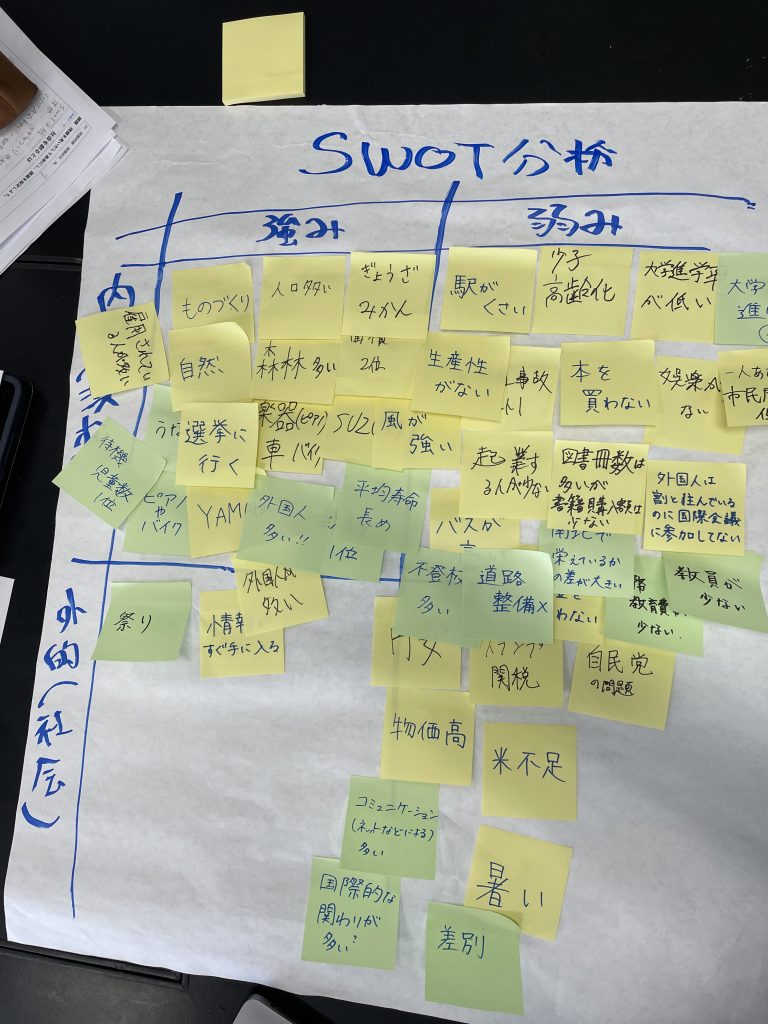 SWOT分析
強み
弱み
内
外的(社会)
雇用されてい
る人が多い
ものづくり
人口多い
ぎょうざ
みかん
駅が
くさい
少子
高齢化
大学進学率
が低い
大学
進
自然
森林 多い
面積
2位
生産性
がない
事故
本を
買わない
娯楽が
ない
一人あ
市民所
低
うな
選挙に
行く
楽器(ピアノ)
車 バイク
SUZ
風が
強い
起業す
る人が少ない
図書冊数は
多いが
書籍購入額は
少ない
外国人は
割と住んでいる
のに国際会議
に参加してない
待機
児童数
1位
ピアノ
や
バイク
YAM
外国人
多い!!
1位
平均寿命
長め
バスが
不登校
多い
道路
整備×
栄えているか
の差が大きい
わない
教育費が
少ない.
教員が
少ない
祭り
情報
すぐ手に入る
外国人が
多い
円安
トランプ
関税
自民党
の問題
物価高
米不足
コミュニケーション
(ネットなどによる)
多い
暑い
国際的な
関わりが
多い?
差別